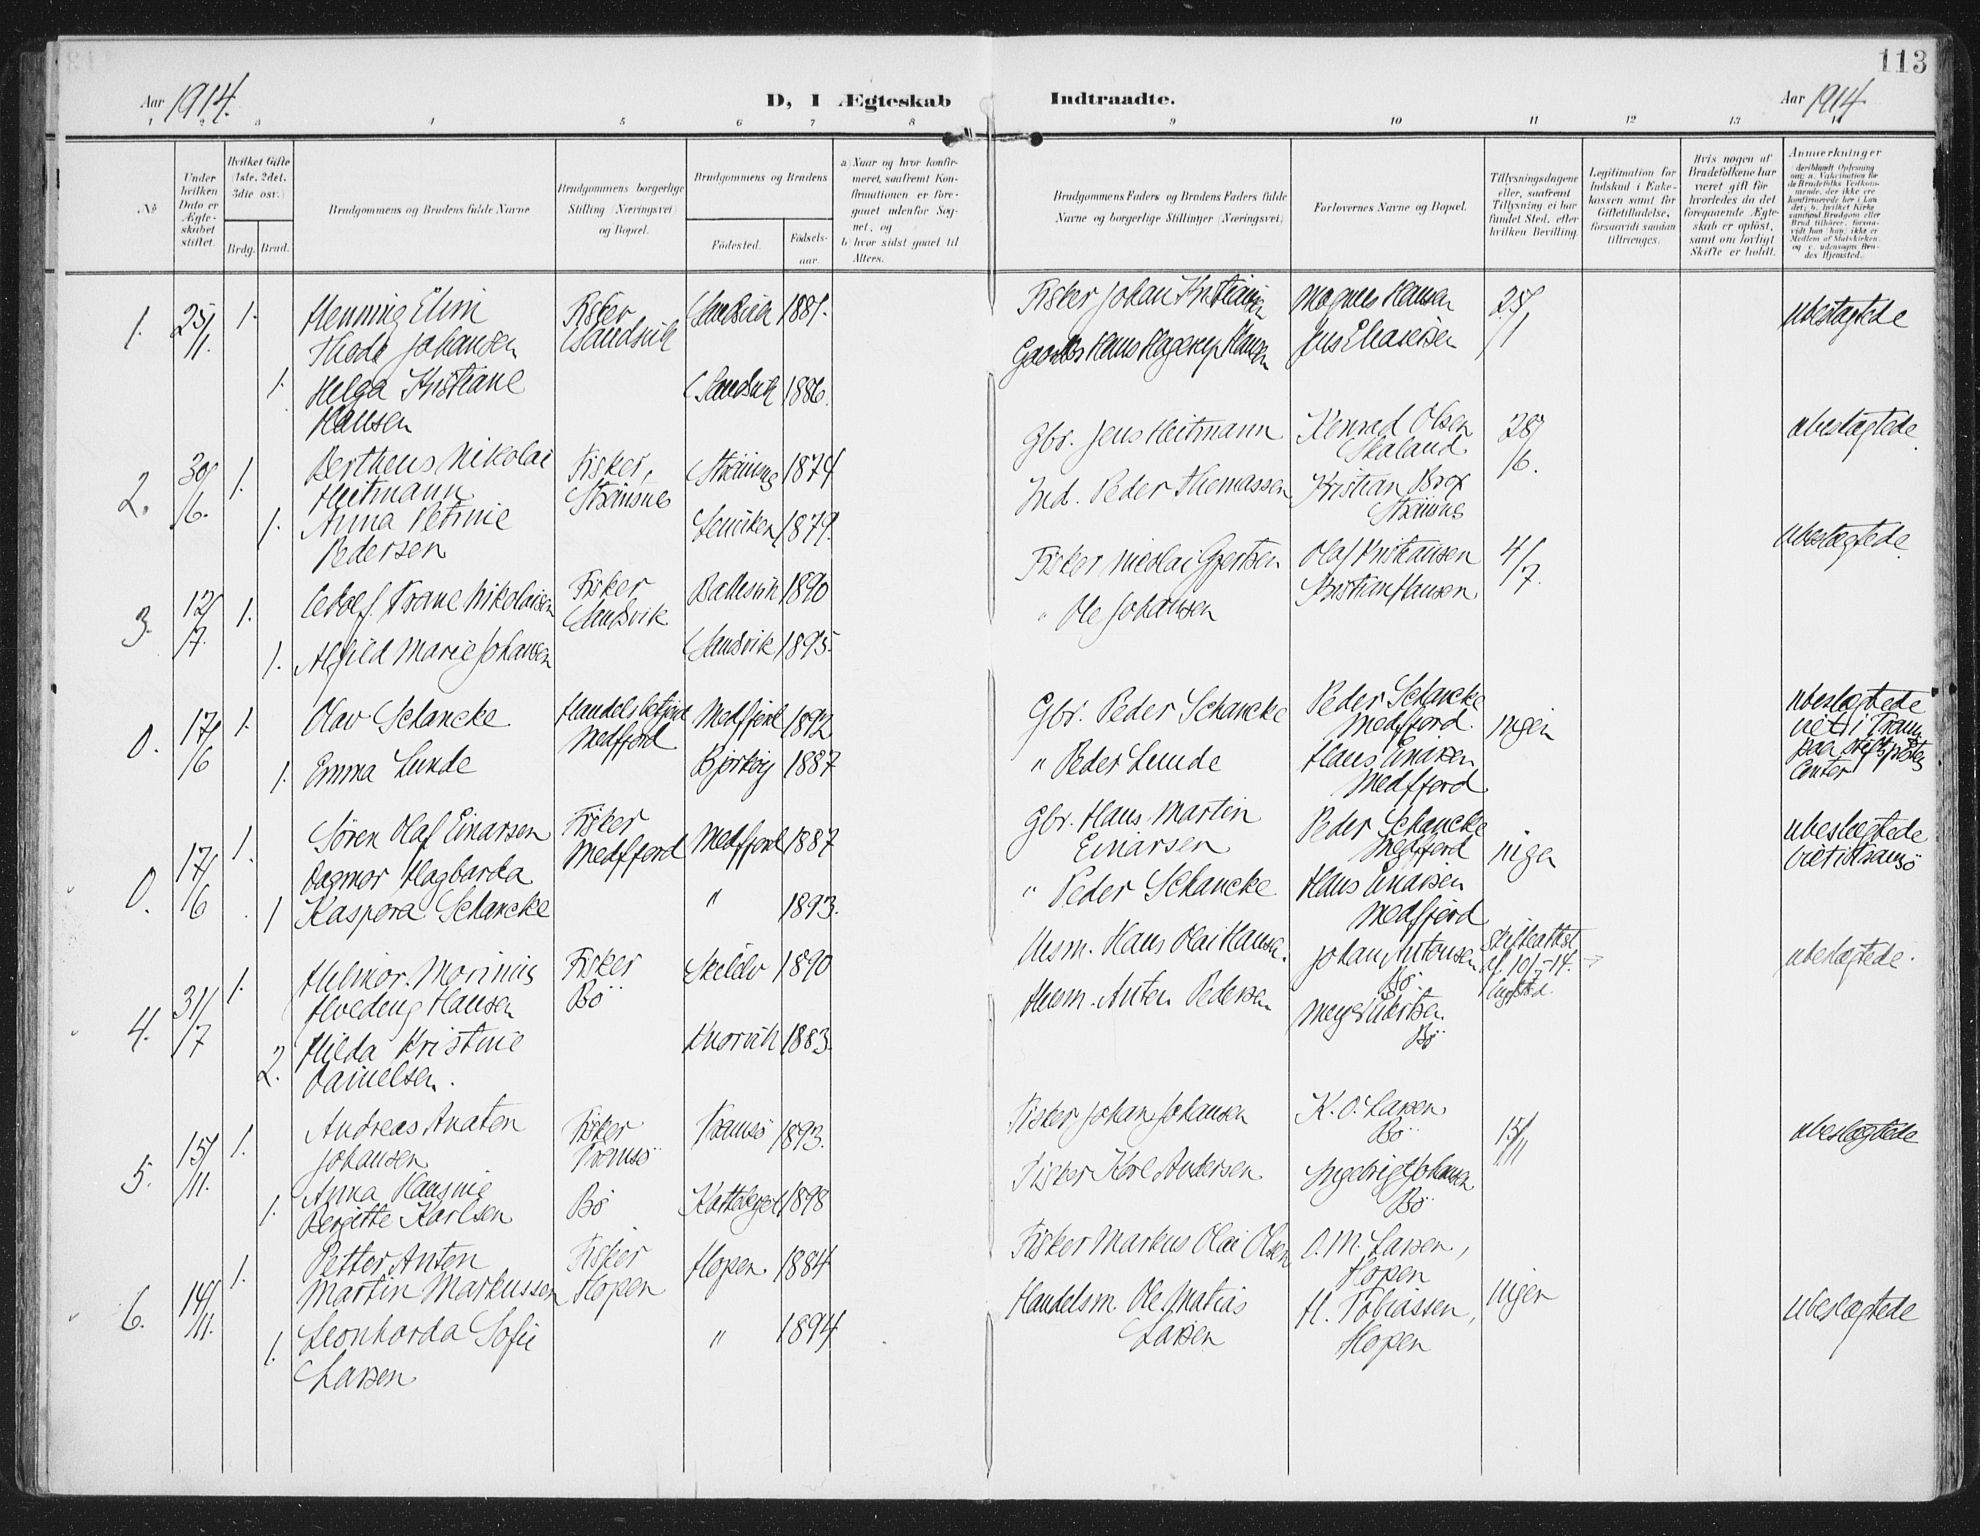 113
Aar 1914.
D, I Ægteskab Indtraadte.
Aar 1914
1 2 3 4 5 6 7 8 9 10 11 12 13 14
No
Under hvilken Dato er Ægteskabet stiftet.
Hvilket Gifte (1ste, 2det, 3die osv.)
Brdg. Brud.
Brudgommens og Brudens fulde Navne
Brudgommens borgerlige Stilling (Næringsvei) og Bopæl.
Brudgommens og Brudens
Fødested. Fødselsaar.
a) Naar og hvor konfirmeret, saafremt Konfirmationen er foregaaet udenfor Sognet, og
b) hvor sidst gaaet til Alters.
Brudgommens Faders og Brudens Faders fulde Navne og borgerlige Stillinger (Næringsvei)
Forlovernes Navne og Bopæl.
Tillysningsdagene eller, saafremt Tillysning ei har fundet Sted, efter hvilken Bevilling.
Legitimation for Indskud i Enkekassen samt for Giftetilladelse, forsaavidt saadan tiltrænges.
Hvis nogen af Brudefolkene har været gift før hvorledes da det foregaaende Ægteskab er opløst, samt om lovligt Skifte er holdt.
Anmærkninger
1. 25/1. 1. Henning Elvin
Thode Johansen
Fisker
Sandsvik
Sandsvik 1881.
Fisker Johan Kristiansen
Magnus Hansen
25/1
ubeslægtede
1. Helga Kristiane
Hansen
Sandsvik 1886.
Hans Hagerup Hansen
Jens Eliasesen
2. 30/6. 1. Bertheus Nikolai
Heitmann
Fisker,
Strömsnes
Strömsnes 1874
Gbr. Jens Heitmann
Konrad Olsen
Skaland
28/6.
ubeslægtede
1. Anna Petrine
Pedersen
Lenviken 1879.
Ind. Peder Thomassen
Kristian Brox
Strömsnes
3. 12/7. 1. Adolf Trane Nikolaisen
Fisker
Sandsvik
Ballesvik 1890
Fisker Nicolai Gjertsen
Olaf Kristiansen
4/7.
ubeslægtede
1. Alfild Marie Johansen
Sandsvik 1895
" Ole Johansen
Kristian Hansen
0. 17/6 1. Olav Schancke
Handelsbetjent
Medfjord
Medfjord 1892
Gbr. Peder Schancke
Peder Schancke
Medfjord.
ingen
ubeslægtede
viet i Tromsö
paa
1. Emma Lunde
Bjarköy 1887
" Peder Lunde
Hans Einarsen
Medfjord
0. 17/6 1. Sören Olaf Einarsen
Fisker
Medfjord
Medfjord 1887
Gbr. Hans Martin
Einarsen
Peder Schancke
Medfjord
ingen
ubeslægtede
viet i Tromsö
1 Dagmar Hagbarda
Kaspara Schancke
" 1893.
" Peder Schancke
Hans Einarsen
Medfjord
4. 31/7 1. Helmor Marinius
Hveding Hansen
Fisker
Bö
Skaldv 1890
Husm. Hans Olai Hansen.
Johan Antonsen
Bö.
Skifteattest
af 10/7-14.
ubeslægtede.
2. Hilda Kristine
Danielsen.
Knorvik 1883.
Husm. Anton Pedersen
Meyer
Bö
5. 15/11. 1. Andreas Anaton
Johansen
Fisker
Tromsö
Tromsö 1893.
Fisker Johan Johansen
K. O. Larsen
Bö
15/11
ubeslægtede
1. Anna Hansine
Bergitte Karlsen
Bö
Katteberget 1898
Fisker Karl Andersen
Ingebrigt Johansen
Bö
6. 14/11. 1. Petter Anton
Martin Markussen
Fisker
Hopen
Hopen 1884
Fisker Markus Olai Olsen
O. M. Larsen,
Hopen
ingen
ubeslægtede
1. Leonharda Sofie
Larsen
" 1894
Handelsm. Ole Matias
Larsen
H. Tobiassen,
Hopen